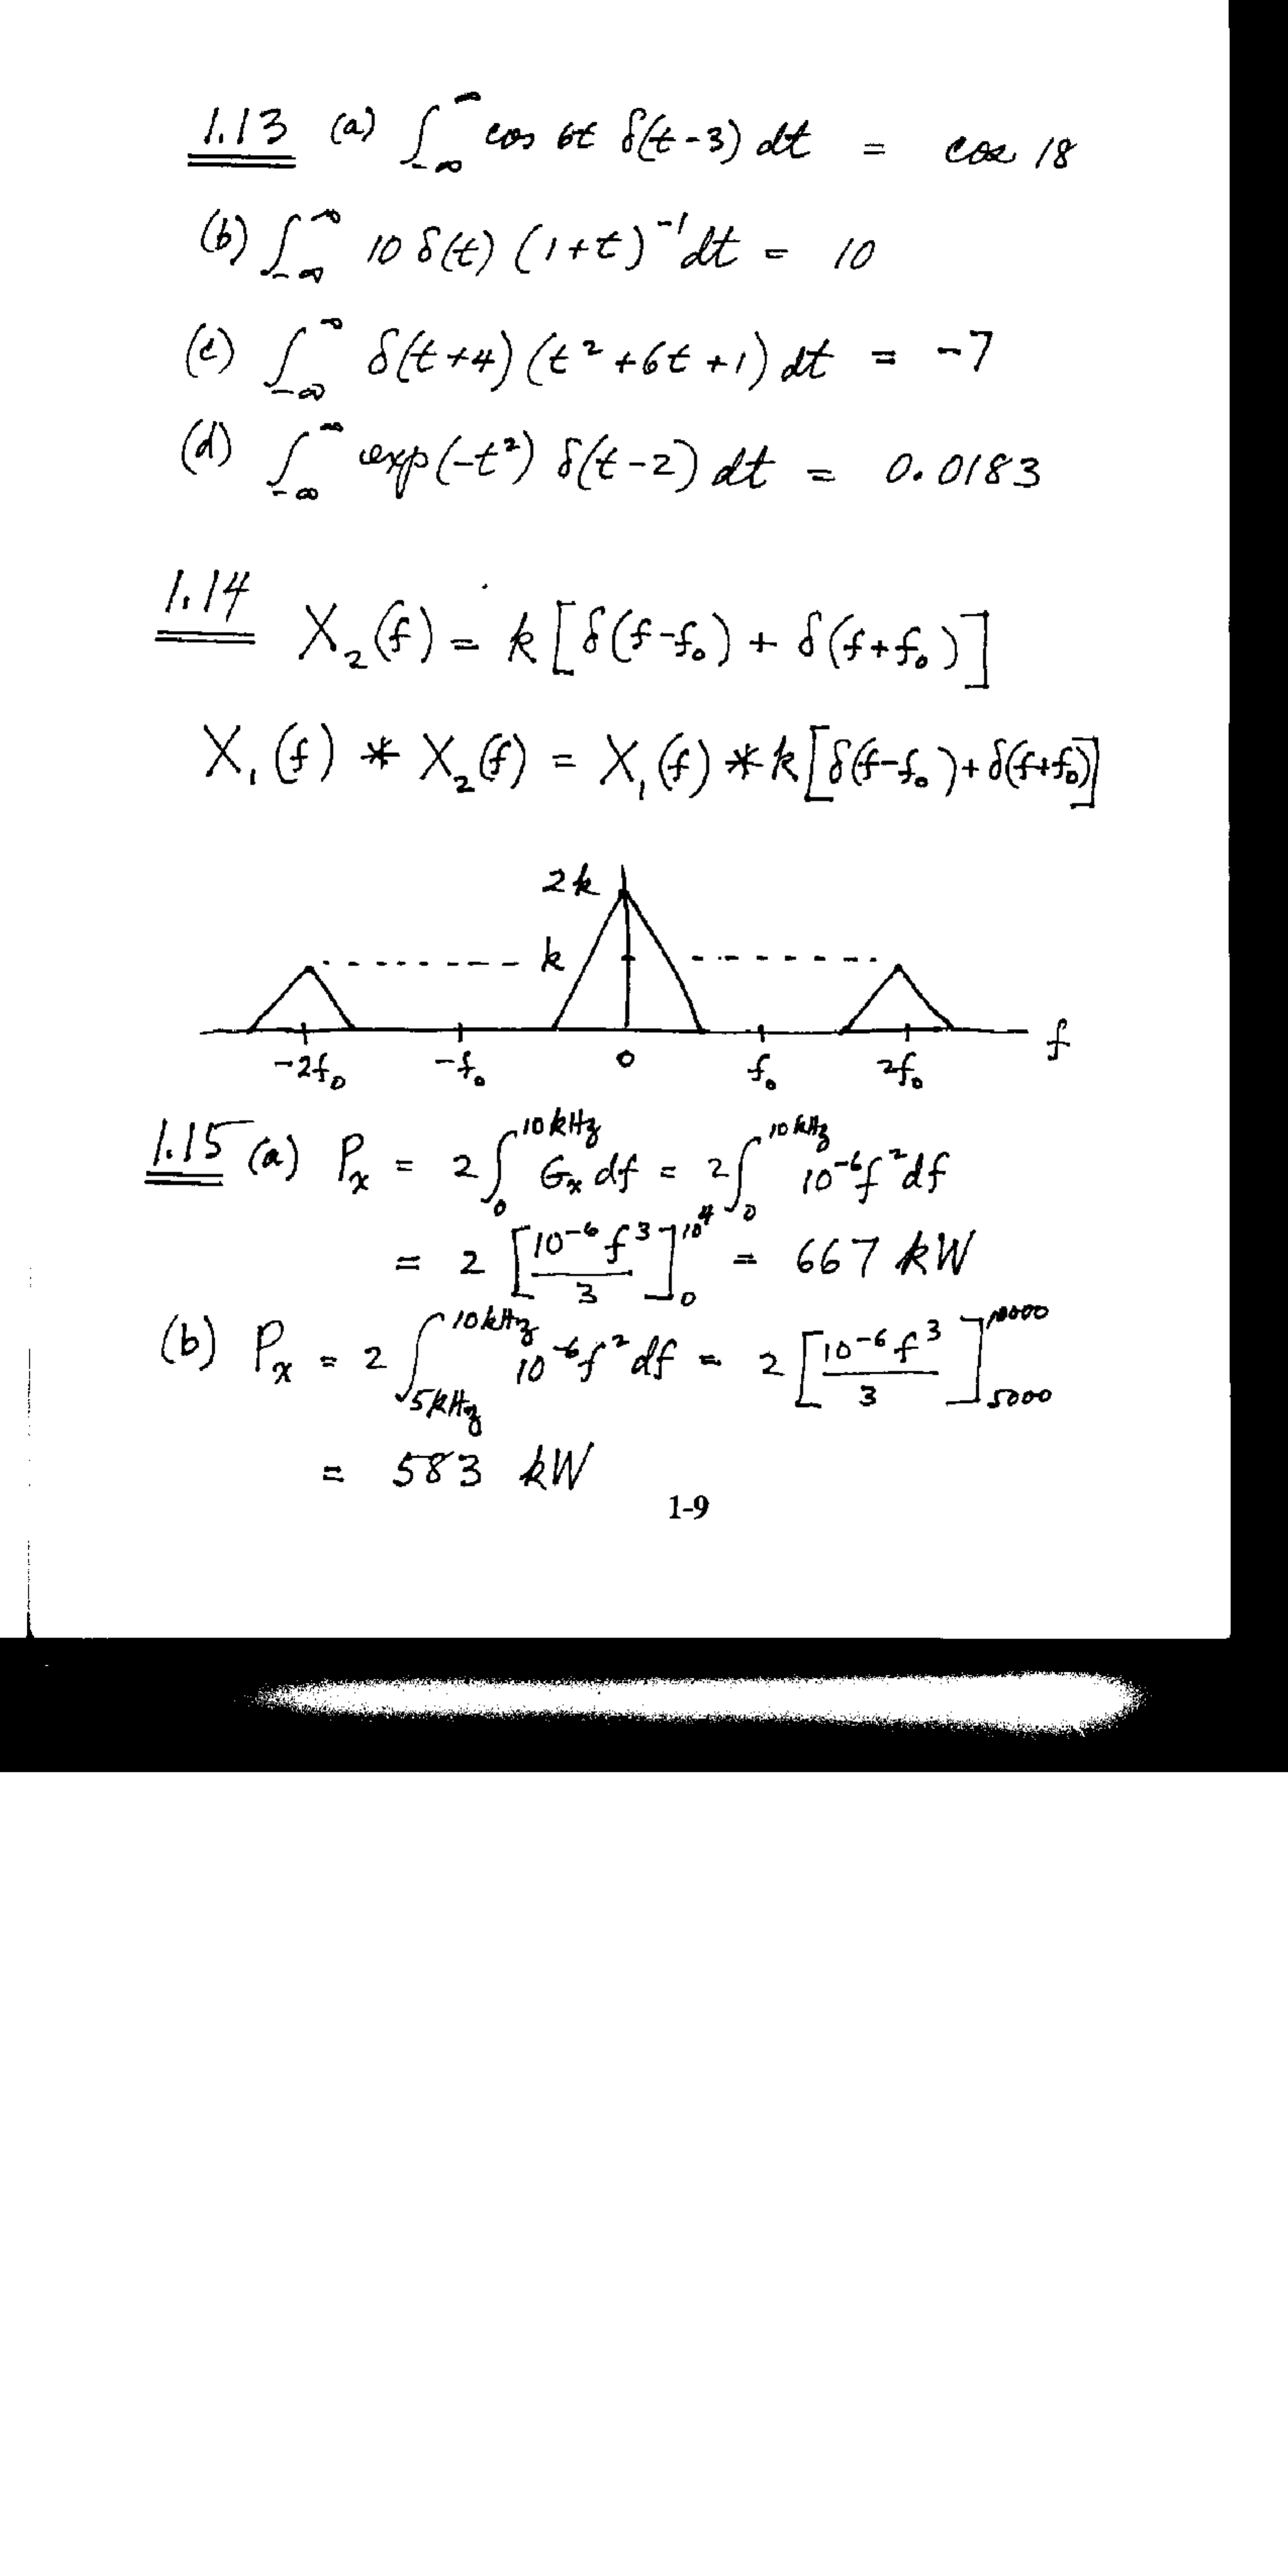 1.13 (a) ∫_{-∞}^{∞} cos 6t δ(t-3) dt = cos 18
(b) ∫_{-∞}^{∞} 10 δ(t) (1+t)^{-1} dt = 10
(c) ∫_{-∞}^{∞} δ(t+4) (t^2+6t+1) dt = -7
(d) ∫_{-∞}^{∞} exp(-t^2) δ(t-2) dt = 0.0183
1.14 X_2(f) = k[δ(f-f_0) + δ(f+f_0)]
X_1(f) * X_2(f) = X_1(f) * k[δ(f-f_0)+δ(f+f_0)]
2k
k
-2f_0 -f_0 0 f_0 2f_0 f
1.15 (a) P_x = 2∫_0^{10kHz} G_x df = 2∫_0^{10kHz} 10^{-6}f^2 df
= 2[10^{-6} f^3/3]_0^{10^4} = 667 kW
(b) P_x = 2∫_{5kHz}^{10kHz} 10^{-6}f^2 df = 2[10^{-6} f^3/3]_{5000}^{10000}
= 583 kW
1-9